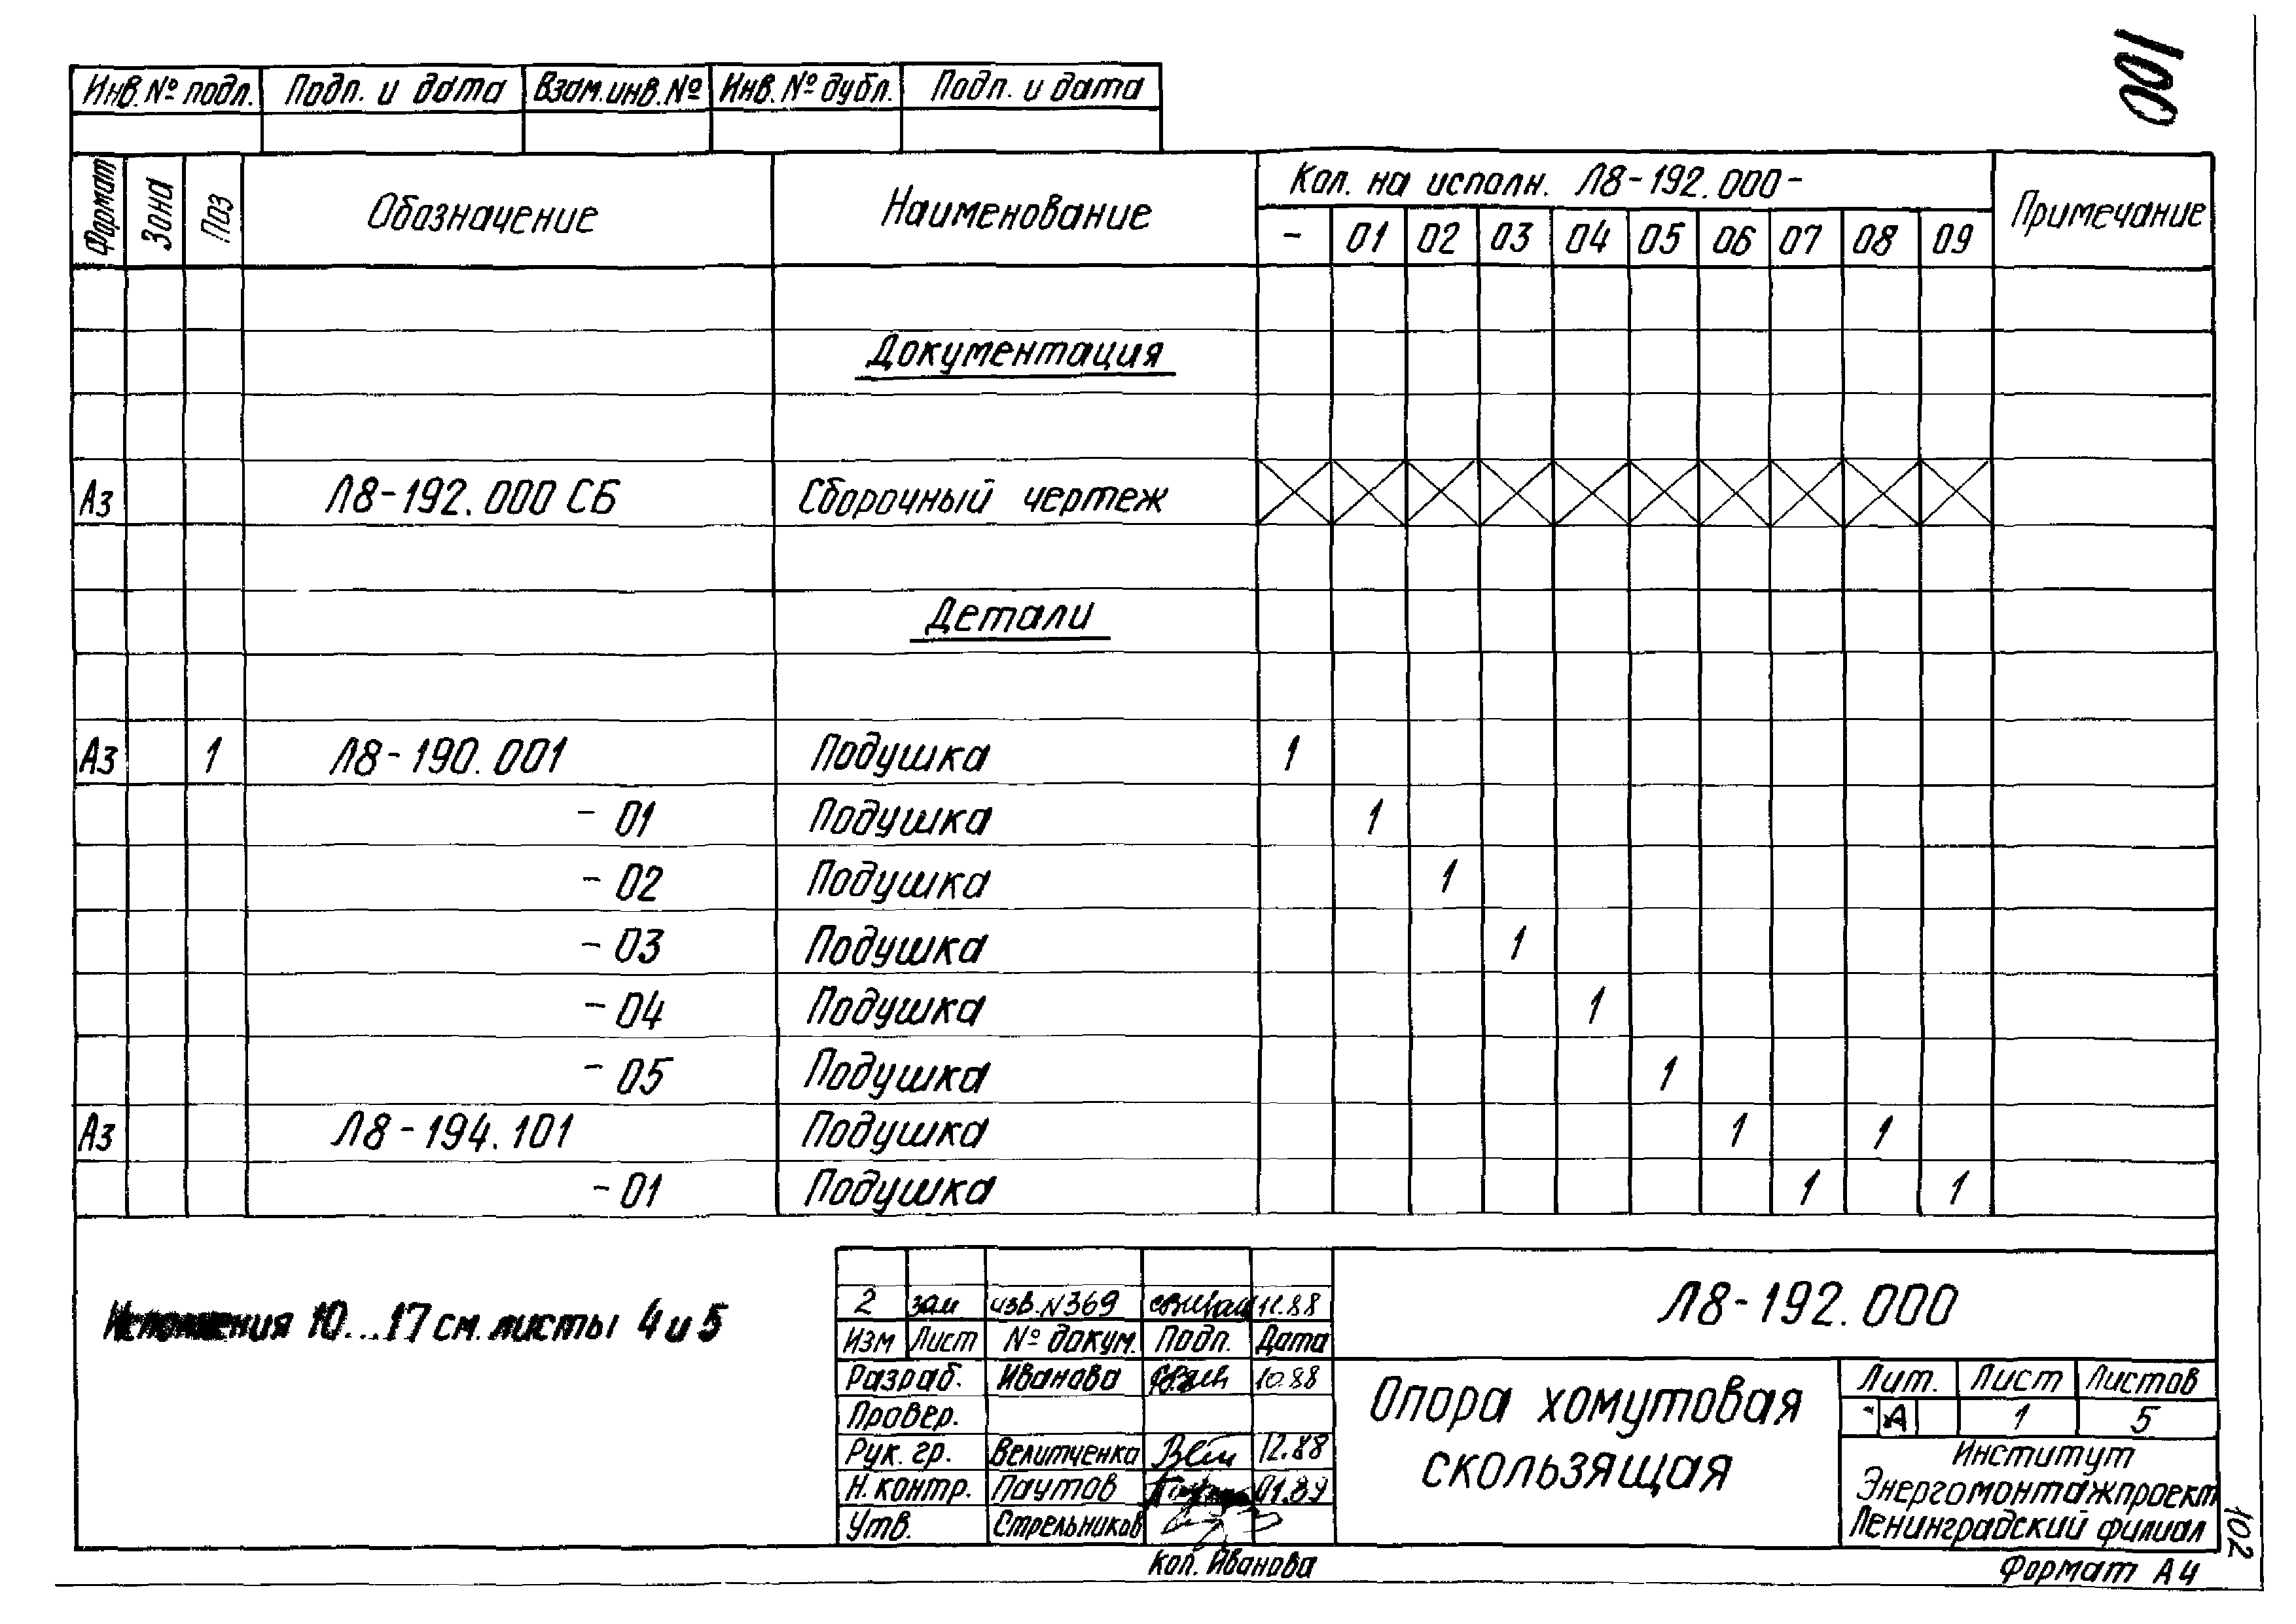 100
Инв.№ подл. Подп. и дата Взам.инв.№ Инв.№ дубл. Подп. и дата
Формат Зона Поз Обозначение Наименование Кол. на исполн. Л8-192.000- Примечание
- 01 02 03 04 05 06 07 08 09
Документация
А3 Л8-192.000 СБ Сборочный чертеж
Детали
А3 1 Л8-190.001 Подушка 1
- 01 Подушка 1
- 02 Подушка 1
- 03 Подушка 1
- 04 Подушка 1
- 05 Подушка 1
А3 Л8-194.101 Подушка 1 1
- 01 Подушка 1 1
Исполнения 10...17 см. листы 4 и 5
2 зам изв.№369 11.88
Изм Лист № докум. Подп. Дата
Л8-192.000
Разраб. Иванова 10.88
Провер.
Рук. гр. Велитченко 12.88
Н.контр. Паутов 01.89
Утв. Стрельников
Опора хомутовая
скользящая
Лит. Лист Листов
А 1 5
Институт
Энергомонтажпроект
Ленинградский филиал
Коп. Иванова
Формат А4
102